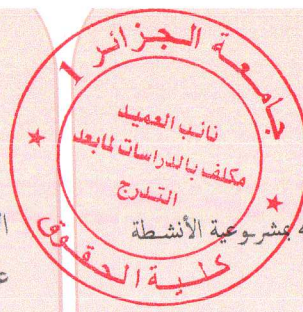 جامعة الجزائر 1
نائب العميد
مكلف بالدراسات لمابعد
التدرج
كلية الحقوق
بمشروعية الأنشطة